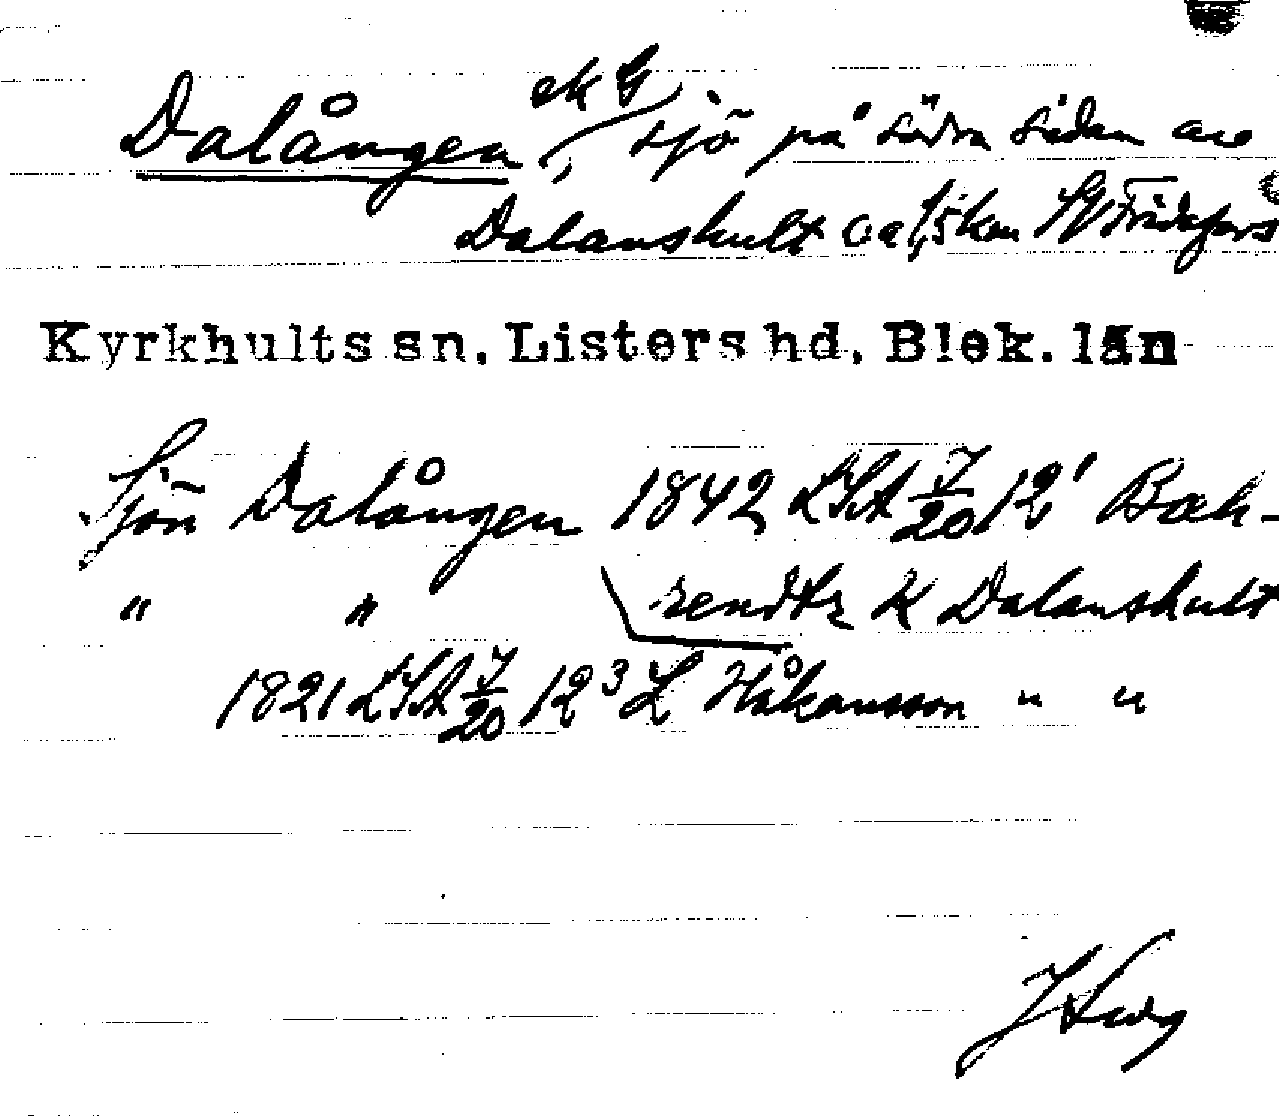 Dalången, sjö på södra sidan av
Dalanshult ca 1,5 km SV Fridafors
Kyrkhults sn. Listers hd. Blek. län
Sjön Dalången 1842 LSA J/20 12¹ Bak-
" " rendtz K Dalanshult
1821 LSA J/20 12³ L Håkansson " "